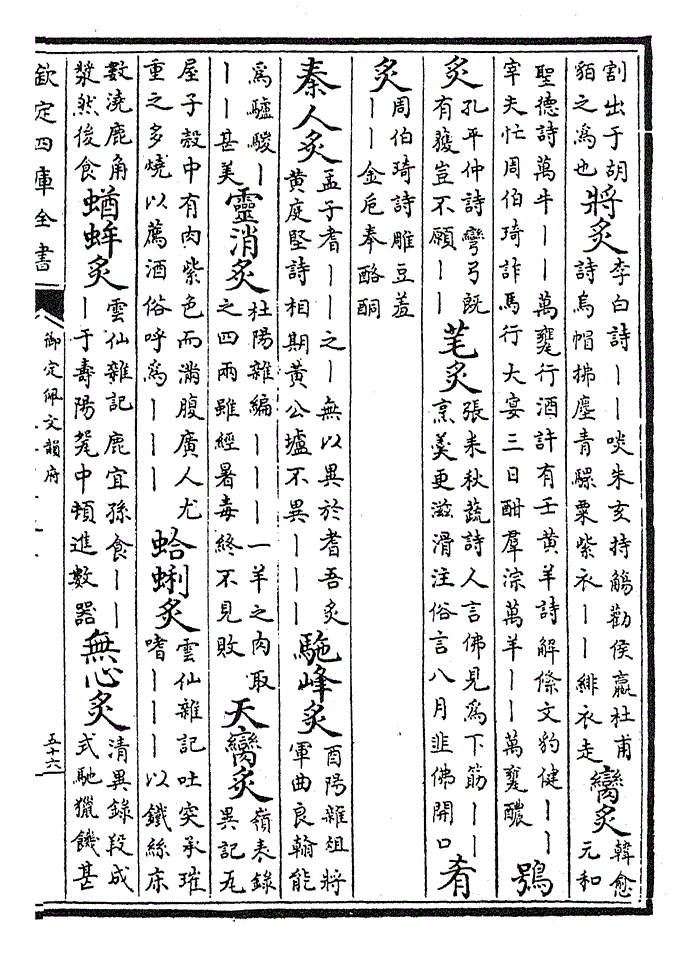 割出于胡
貊之為也
將炙
李白詩丨丨啖朱亥持觴勸侯嬴杜甫
詩烏帽拂塵青騾粟紫衣丨丨緋衣走
臠炙
韓愈
元和
聖德詩萬牛丨丨萬甕行酒許有壬黃羊詩解絛文豹健丨丨
宰夫忙周伯琦詐馬行大宴三日酣羣淙萬羊丨丨萬甕醲
鴞
炙
孔平仲詩彎弓既
有獲豈不願丨丨
芼炙
張耒秋蔬詩人言佛見為下筯丨丨
烹羹更滋滑注俗言八月韭佛開口
肴
炙
周伯琦詩雕豆羞
丨丨金巵奉酪酮
秦人炙
孟子耆丨丨之丨無以異於耆吾炙
黃庭堅詩相期黃公壚不異丨丨丨
駞峰炙
酉陽雜俎將
軍曲良翰能
為驢騣丨
丨丨甚美
靈消炙
杜陽雜編丨丨丨一羊之肉取
之四兩雖經暑毒終不見敗
天臠炙
嶺表錄
異記瓦
屋子殻中有肉紫色而滿腹廣人尤
重之多燒以薦酒俗呼為丨丨丨
蛤蜊炙
雲仙雜記吐突承璀
嗜丨丨丨以鐵絲牀
數澆鹿角
漿然後食
蝤蛑炙
雲仙雜記鹿宜孫食丨丨
丨于壽陽瓷中頓進數器
無心炙
清異錄段成
式馳獵饑甚
欽定四庫全書
御定佩文韻府
五十六